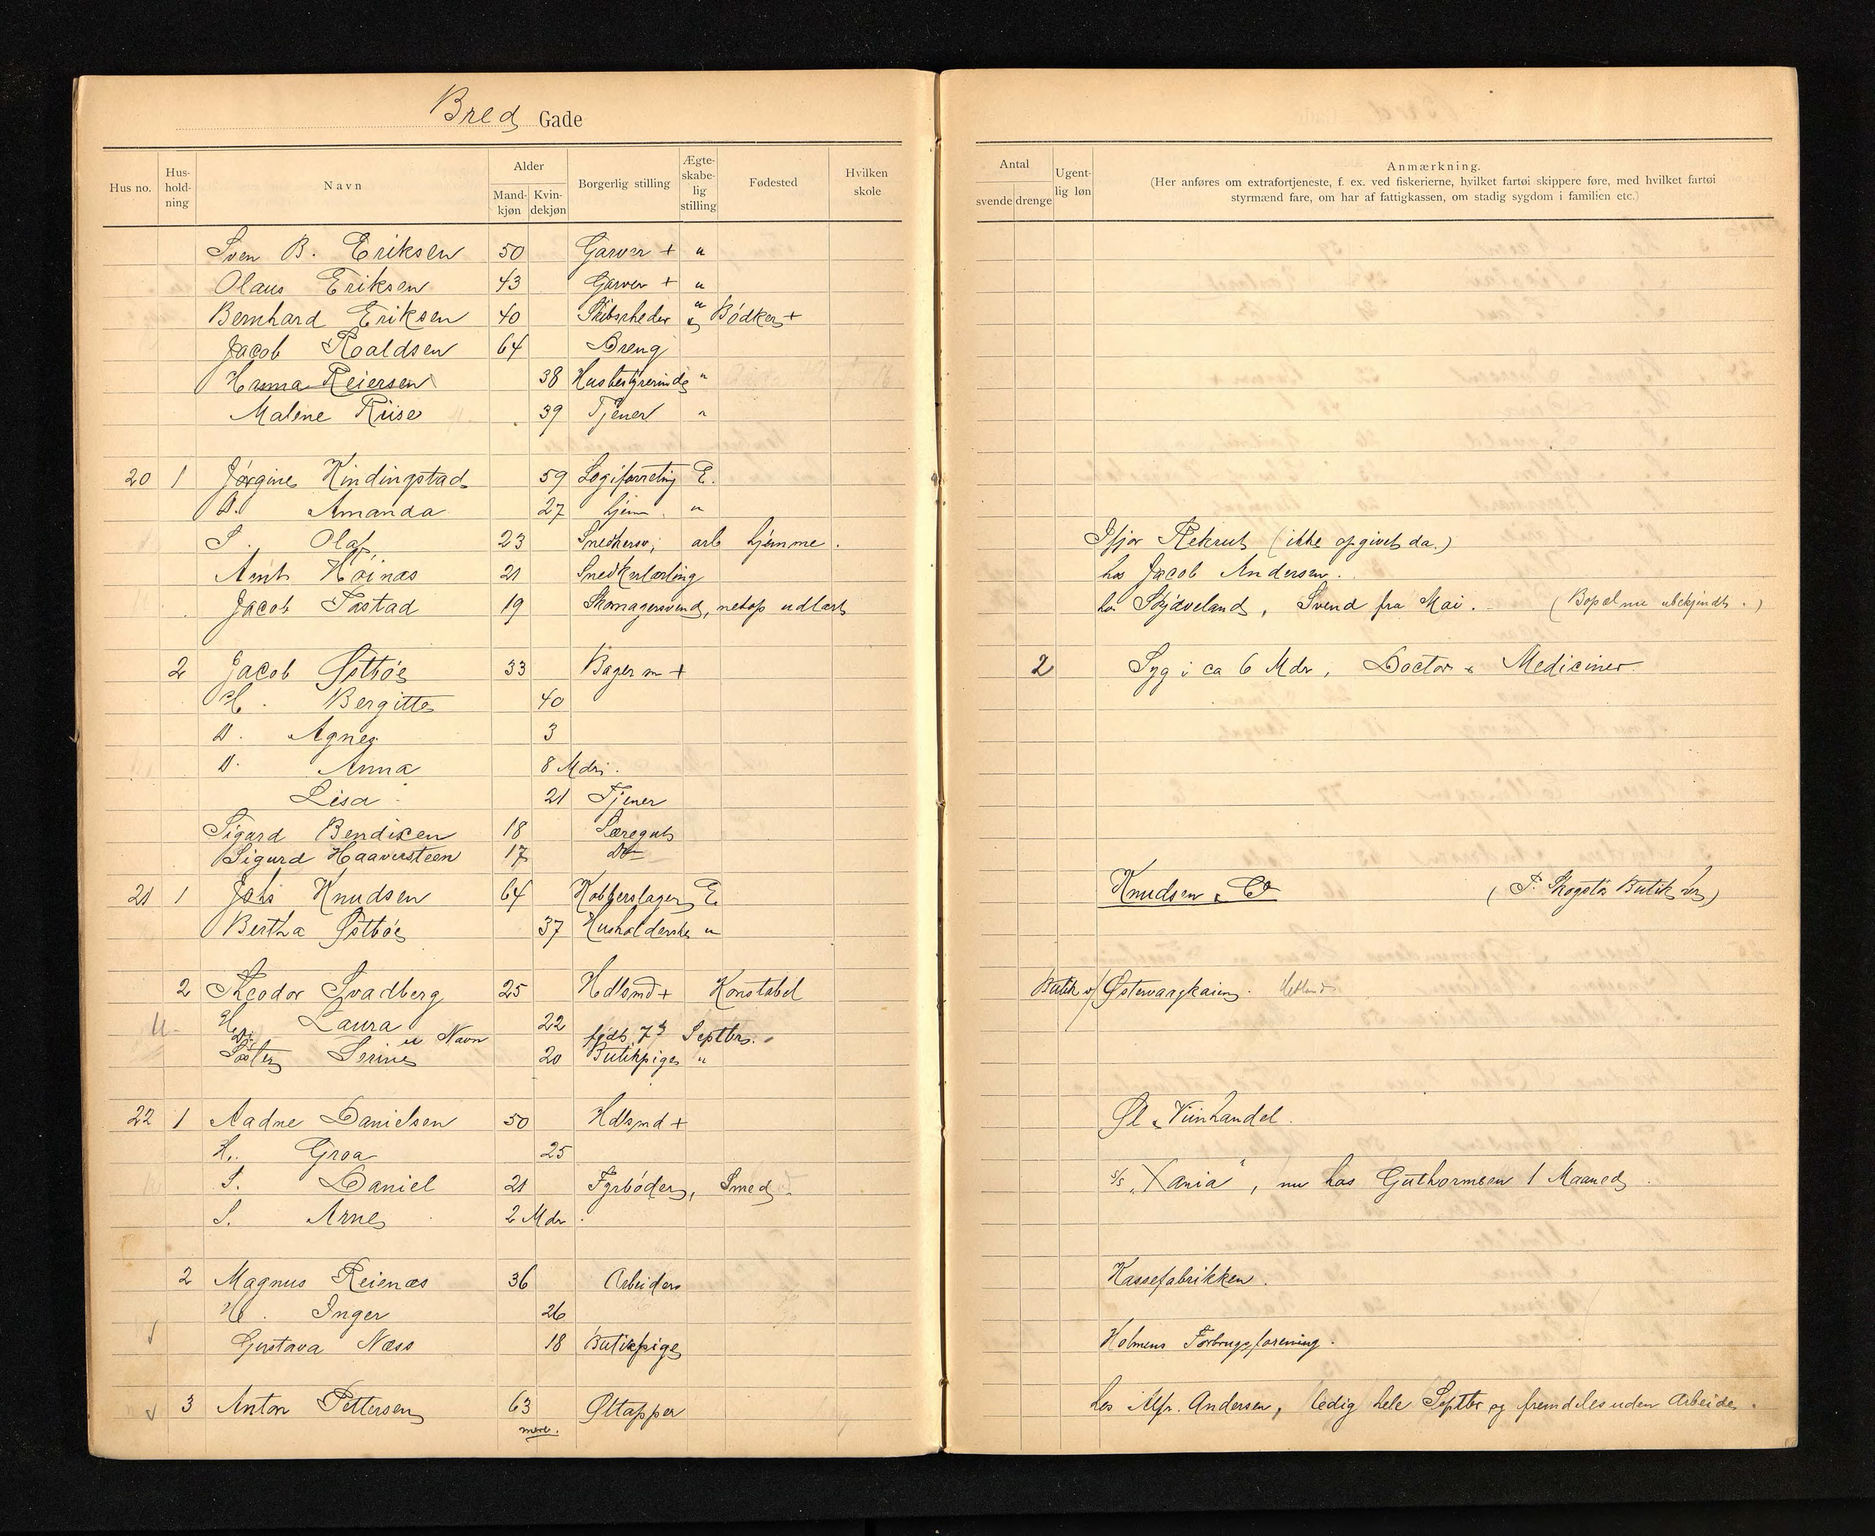 Bred Gade
Hus no. Hus-hold-ning Navn Alder Mand-kjøn Kvin-dekjøn Borgerlig stilling Ægte-skabe-lig stilling Fødested Hvilken skole
Antal svende drenge Ugent-lig løn Anmærkning.
(Her anføres om extrafortjeneste, f. ex. ved fiskerierne, hvilket fartøi skippere føre, med hvilket fartøi
styrmænd fare, om har af fattigkassen, om stadig sygdom i familien etc.)
Sven B. Eriksen 50 Garver + "
Olaus Eriksen 43 Garver + "
Bernhard Eriksen 40 Skibsrheder " & Bødker +
Jacob Roaldsen 64 Dreng
Reiersen 38 Husbestyrerinde "
Malene Riise 39 Tjener "
20 1 Jørgine Kindingstad 59 Logiforretng E.
D. Amanda 27 hjem. "
S. Olaf 23 Snedkersv, arb hjemme. Ifjor Rekrut (ikke opgivet da.)
Arnt Høinæs 21 Snedkerlærling hos Jacob Andersen.
Jacob Tastad 19 Skomagersvend, netop udlært hos Skjæveland, Svend fra Mai. (Bopæl nu ubekjendt.)
2 Jacob Østbøe 33 Bager m + 2 Syg i ca 6 Mdr, Doctor & Mediciner
H. Bergitte 40
D. Agnes 3
D. Anna 8 Mdr.
Lisa 21 Tjener
Sigurd Bendixen 18 Læregut
Sigurd Haaversteen 17 Do
21 1 Johs Knudsen 64 Kobberslager E Knudsen & Co (T. Skogstø Butik her)
Bertha Østbøe 37 Husholderske "
2 Theodor Svadberg 25 Hdlsmd + Konstabel Butik v/ Østervaagkaien.
H. Laura 22
D. u Navn født 7de Septbr.
Søster Serine 20 Butikpige "
22 1 Aadne Danielsen 50 Hdlsmd + Øl & Viinhandel.
H. Groa 25
S. Daniel 21 Fyrbøder, Smed. s/s "Xania", nu hos Guthormsen 1 Maaned.
S. Arne 2 Mdr.
2 Magnus Reienæs 36 Arbeider Kassefabrikken.
H. Inger 26
Gustava Næss 18 Butikpige Holmens Forbrugsforening.
3 Anton Pettersen 63 Øltapper hos Alfr. Andersen, ledig hele Septbr og fremdeles uden Arbeide.
mere.